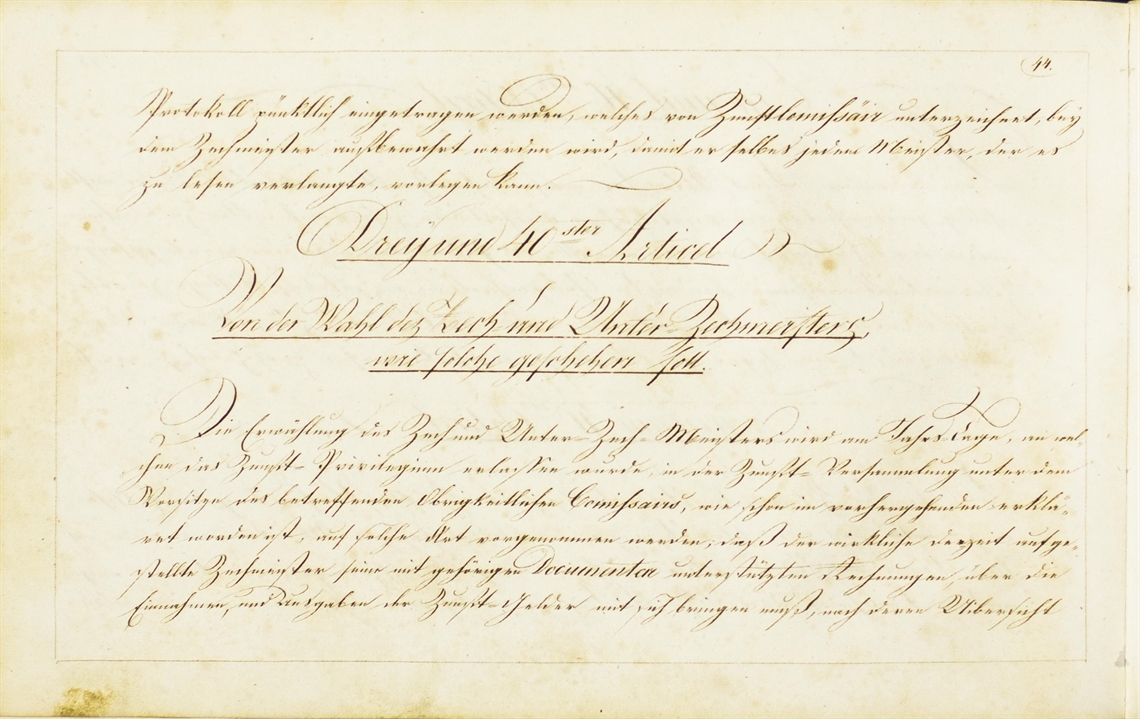 44.
Protokoll pünktlich eingetragen werden, welches von Zunftkomißair unterzeichnet, bey
dem Zechmeister aufbewahrt werden wird, damit er selbes jedem Meister, der es
zu lesen verlangte, vorlegen kann.
Dreyund 40ster Articel
Von der Wahl des Zech und Unter-Zechmeisters,
wie solche geschehen soll.
Die Erwählung des Zech und Unter-Zech-Meisters wird am Jahrs Tage, an wel-
chen das Zunft-Privilegium erlassen wurde, in der Zunft-Versammlung unter dem
Vorsitze des betreffenden Obrigkeitlichen Comißairs, wie schon im vorhergehenden erklä-
ret worden ist, auf solche Art vorgenommen werden, daß der wirkliche derzeit aufge-
stellte Zechmeister seine mit gehörigen Documenten unterstützten Rechnungen über die
Einnahmen, und Ausgaben der Zunft-Gelder mit sich bringen muß, nach deren Übersicht